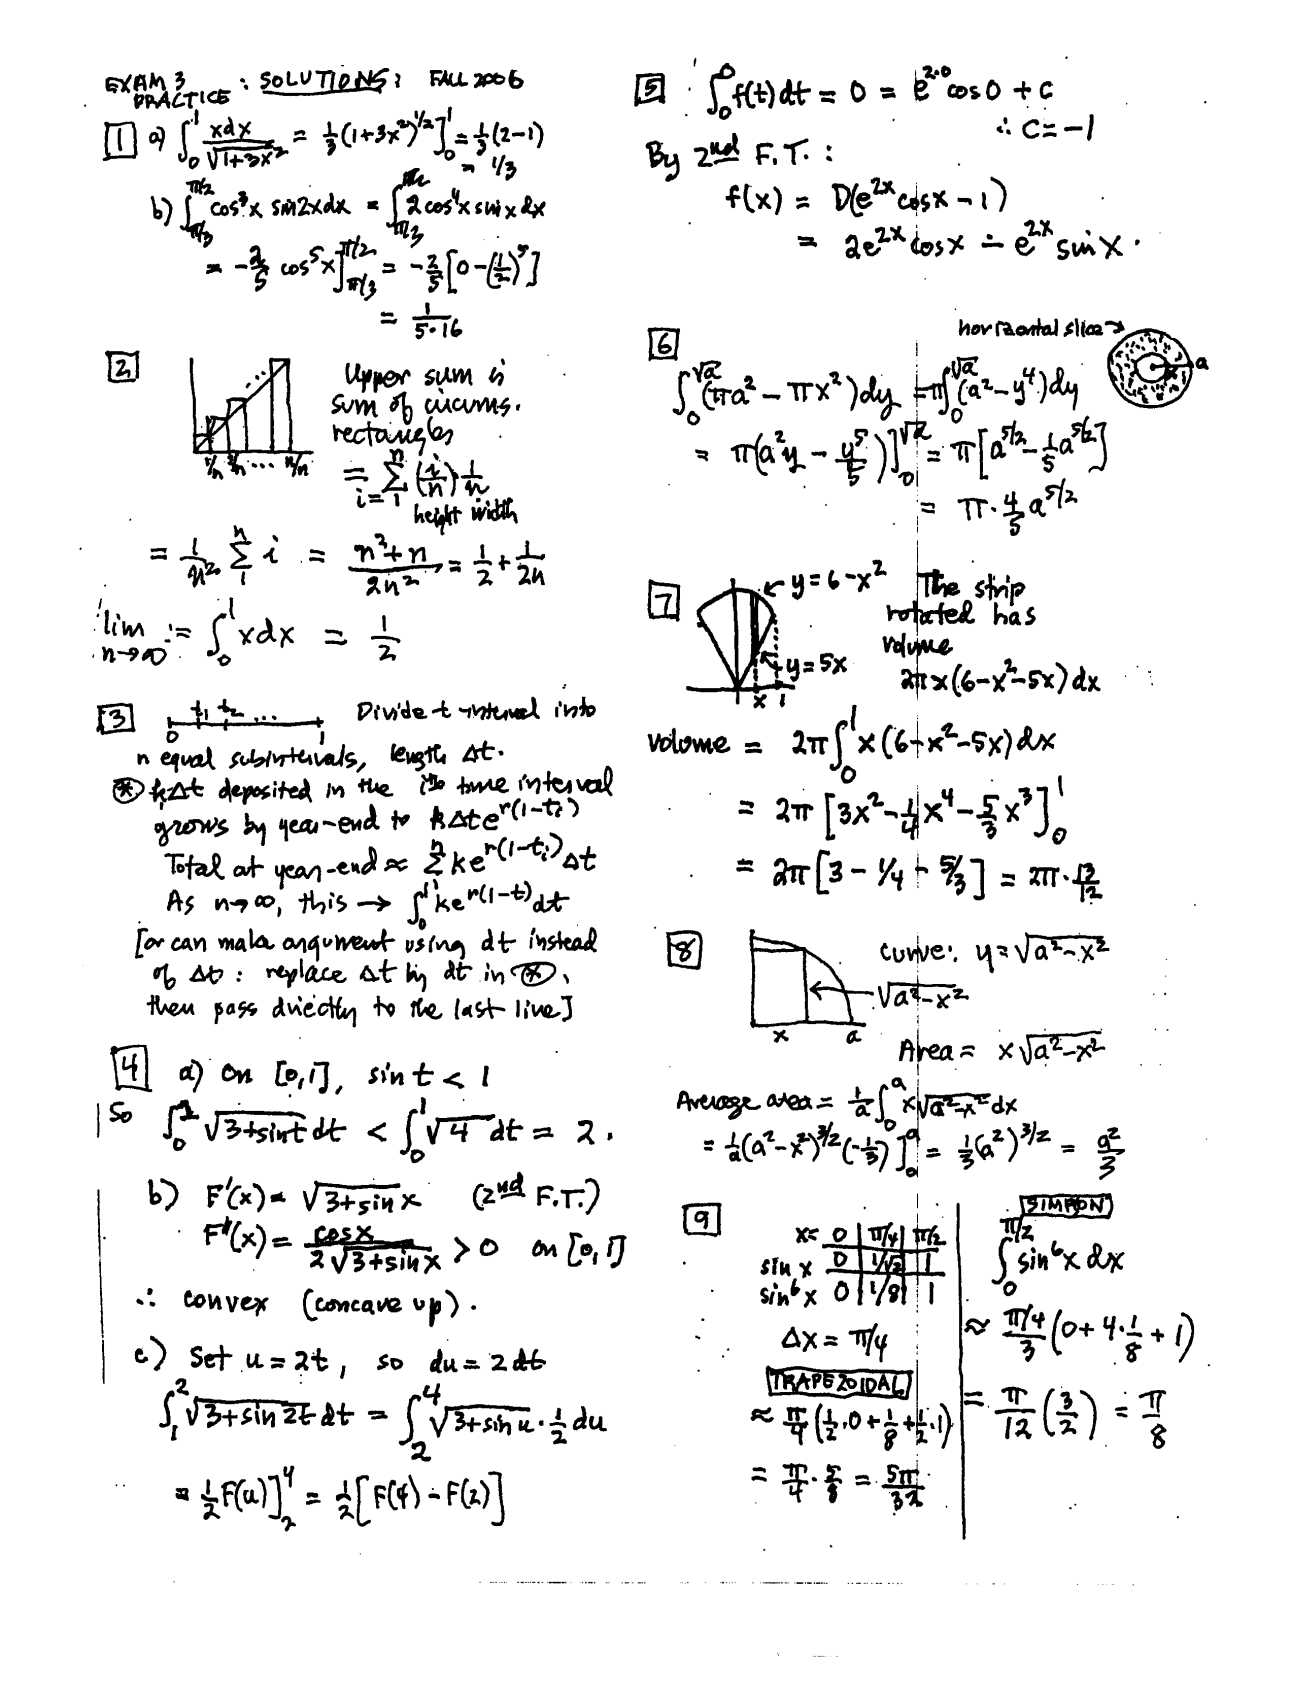 EXAM 3 PRACTICE : SOLUTIONS: FALL 2006
1 a) ∫₀¹ xdx/√(1+3x²) = 1/3 (1+3x²)^{1/2}]₀¹ = 1/3 (2-1)
= 1/3
b) ∫_{π/3}^{π/2} cos³x sin2xdx = ∫_{π/3}^{π/2} 2cos⁴x sinx dx
= -2/5 cos⁵x]_{π/3}^{π/2} = -2/5 [0-(1/2)⁵]
= 1/(5·16)
2
Upper sum is
sum of circums.
rectangles
1/n 2/n ... n/n
= Σ_{i=1}^{n} (i/n)·1/n
height width
= 1/n² Σ₁ⁿ i = (n²+n)/2n² = 1/2 + 1/2n
lim_{n→∞} := ∫₀¹ xdx = 1/2
3 0 t₁ t₂ ... 1 Divide t-interval into
n equal subintervals, length Δt.
⊛ kΔt deposited in the ith time interval
grows by year-end to kΔte^{r(1-tᵢ)}
Total at year-end ≈ Σ₁ⁿ ke^{r(1-tᵢ)}Δt
As n→∞, this → ∫₀¹ ke^{r(1-t)}dt
[or can make argument using dt instead
of Δt : replace Δt by dt in ⊛,
then pass directly to the last line]
4 a) On [0,1], sin t < 1
So ∫₀¹ √(3+sint) dt < ∫₀¹ √4 dt = 2.
b) F'(x) = √(3+sin x) (2nd F.T.)
F''(x) = cosx/(2√(3+sinx)) > 0 on [0,1]
∴ convex (concave up).
c) Set u = 2t, so du = 2dt
∫₁² √(3+sin 2t) dt = ∫₂⁴ √(3+sin u)·1/2 du
= 1/2 F(u)]₂⁴ = 1/2 [F(4) - F(2)]
5 ∫₀⁰ f(t)dt = 0 = e^{2·0}cos0 + c
∴ c = -1
By 2nd F.T. :
f(x) = D(e^{2x}cosx - 1)
= 2e^{2x}cosx - e^{2x}sinx.
6
horizontal slice→
x a
∫₀^{√a} (πa² - πx²)dy = π∫₀^{√a} (a² - y⁴)dy
= π(a²y - y⁵/5)]₀^{√a} = π[a^{5/2} - 1/5 a^{5/2}]
= π·4/5 a^{5/2}
7
y = 6-x²
y = 5x
x 1
The strip
rotated has
volume
2πx(6-x²-5x)dx
Volume = 2π∫₀¹ x(6-x²-5x)dx
= 2π[3x² - 1/4 x⁴ - 5/3 x³]₀¹
= 2π[3 - 1/4 - 5/3] = 2π·13/12
8
curve: y = √(a²-x²)
√(a²-x²)
x a
Area = x√(a²-x²)
Average area = 1/a ∫₀ᵃ x√(a²-x²)dx
= 1/a (a²-x²)^{3/2}(-1/3)]₀ᵃ = 1/3 (a²)^{3/2} = a²/3
9
x= 0 π/4 π/2
sin x 0 1/√2 1
sin⁶x 0 1/8 1
Δx = π/4
TRAPEZOIDAL
≈ π/4 (1/2·0 + 1/8 + 1/2·1)
= π/4 · 5/8 = 5π/32
SIMPSON
∫₀^{π/2} sin⁶x dx
≈ (π/4)/3 (0 + 4·1/8 + 1)
= π/12 (3/2) = π/8